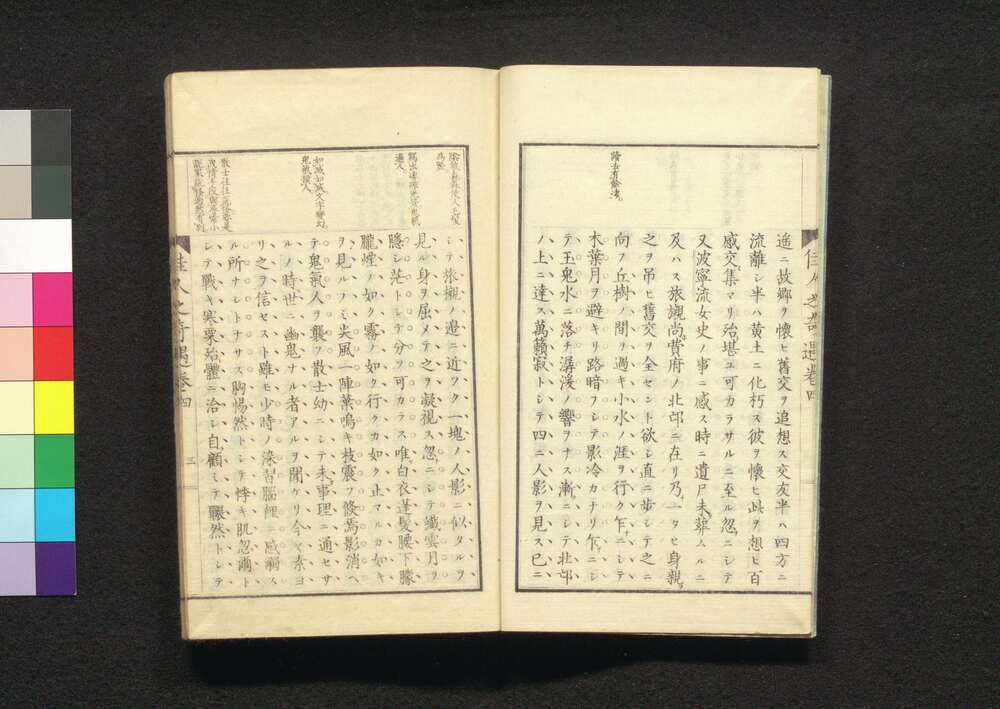 讀去有餘凄
遥ニ故郷ヲ懷ヒ舊交ヲ追想ス交友半ハ四方ニ
流離シ半ハ黄土ニ化朽ス彼ヲ懷ヒ此ヲ想ヒ百
感交集マリ殆堪ユ可カラサルニ至ル忽ニシテ
又波寧流女史ノ事ニ感ス時ニ遺尸未葬ムルニ
及ハス旅櫬尚費府ノ北邙ニ在リ乃一タヒ身親
之ヲ吊ヒ舊交ヲ全セント欲シ直ニ歩シテ之ニ
向フ丘樹ノ間ヲ過キ小水ノ涯ヲ行ク乍ニシテ
木葉月ヲ避キリ路暗フシテ影冷カナリ乍ニシ
テ玉兎水ニ落チ潺湲ノ響ヲナス漸ニシテ北邙
ノ上ニ達ス萬籟寂トシテ四ニ人影ヲ見ス已ニ
佳人之奇遇卷四
シテ旅櫬ノ邉ニ近ツク一塊ノ人影ニ似タルヲ
見ル身ヲ屈メテ之ヲ凝視ス忽ニシテ纖雲月ヲ
隱シ茫トシテ分ツ可カラス唯白衣蓬髮腰下朦
朧煙ノ如ク霧ノ如ク行クカ如ク止マルカ如キ
ヲ見ルノミ尖風一陣葉鳴キ枝震フ倏焉影消ヘ
テ鬼氣人ヲ襲フ散士幼ニシテ未事理ニ通セサ
ルノ時世ニ幽鬼ナル者アルヲ聞ケリ今ヤ素ヨ
リ之ヲ信セスト雖モ少時ノ染習腦裡ニ感爾ス
ル所ナシトナサス胸惕然トシテ悸キ肌忽爾ト
シテ戰キ寒粟殆體ニ洽シ自顧ミテ靦然トシテ
佳人之奇遇卷四
三